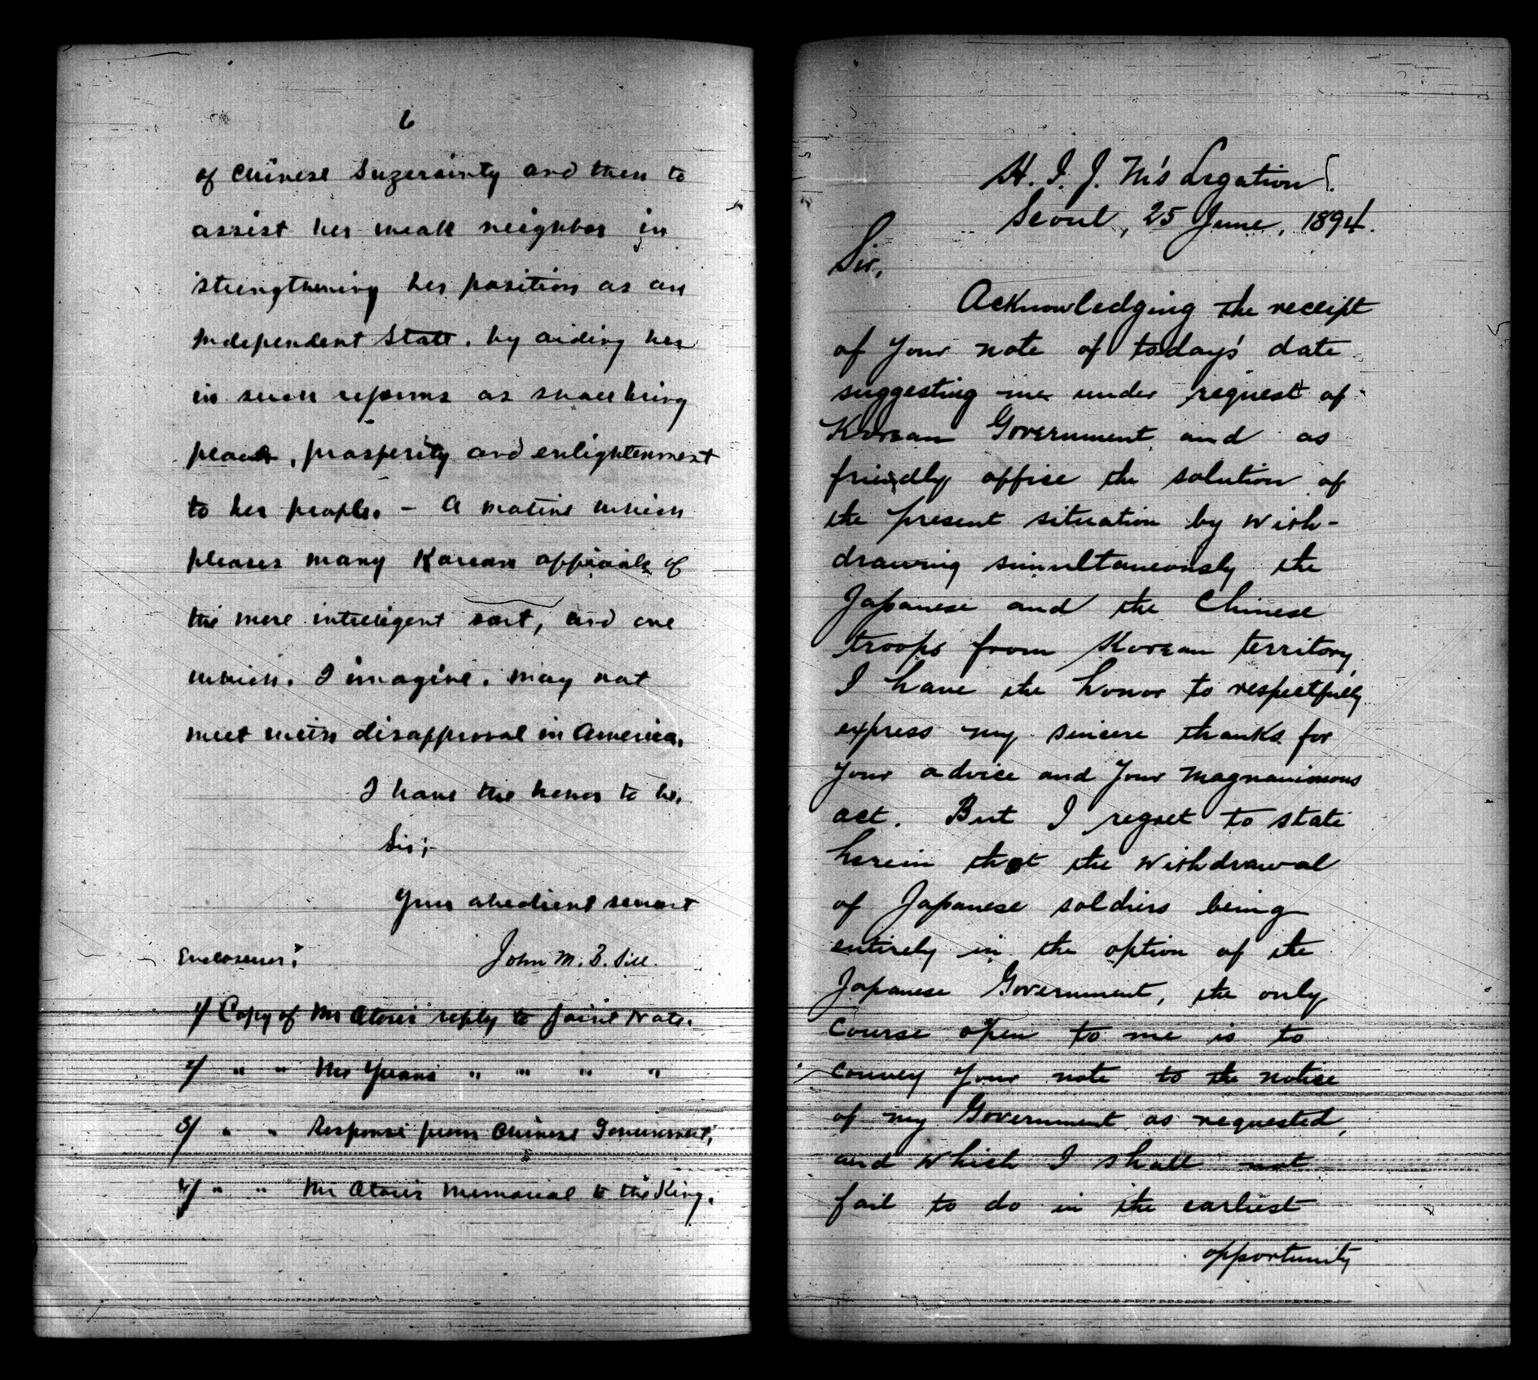 6
of Chinese Suzerainty and then to
assist her weak neighbor in
strengthening her position as an
independent State, by aiding her
in such reforms as shall bring
peace, prosperity and enlightenment
to her people. – A motive which
pleases many Korean officials of
the more intelligent sort, and one
which, I imagine, may not
meet with disapproval in America.
I have the honor to be,
Sir;
Your obedient servant
John M. B. Sill.
Enclosures:
1/ Copy of Mr Otori's reply to Joint Note.
2/ " " Mr Yuan's " " " "
3/ " " Response from Chinese Government,
4/ " " Mr Otori's Memorial to the King.
H. I. J. M's Legation.
Seoul, 25 June, 1894.
Sir,
Acknowledging the receipt
of your note of today's date
suggesting me under request of
Korean Government and as
friendly office the solution of
the present situation by with-
drawing simultaneously the
Japanese and the Chinese
troops from Korean territory,
I have the honor to respectfully
express my sincere thanks for
your advice and your magnanimous
act. But I regret to state
herein that the withdrawal
of Japanese soldiers being
entirely in the option of the
Japanese Government, the only
course open to me is to
convey your note to the notice
of my Government as requested,
and which I shall not
fail to do in the earliest
opportunity